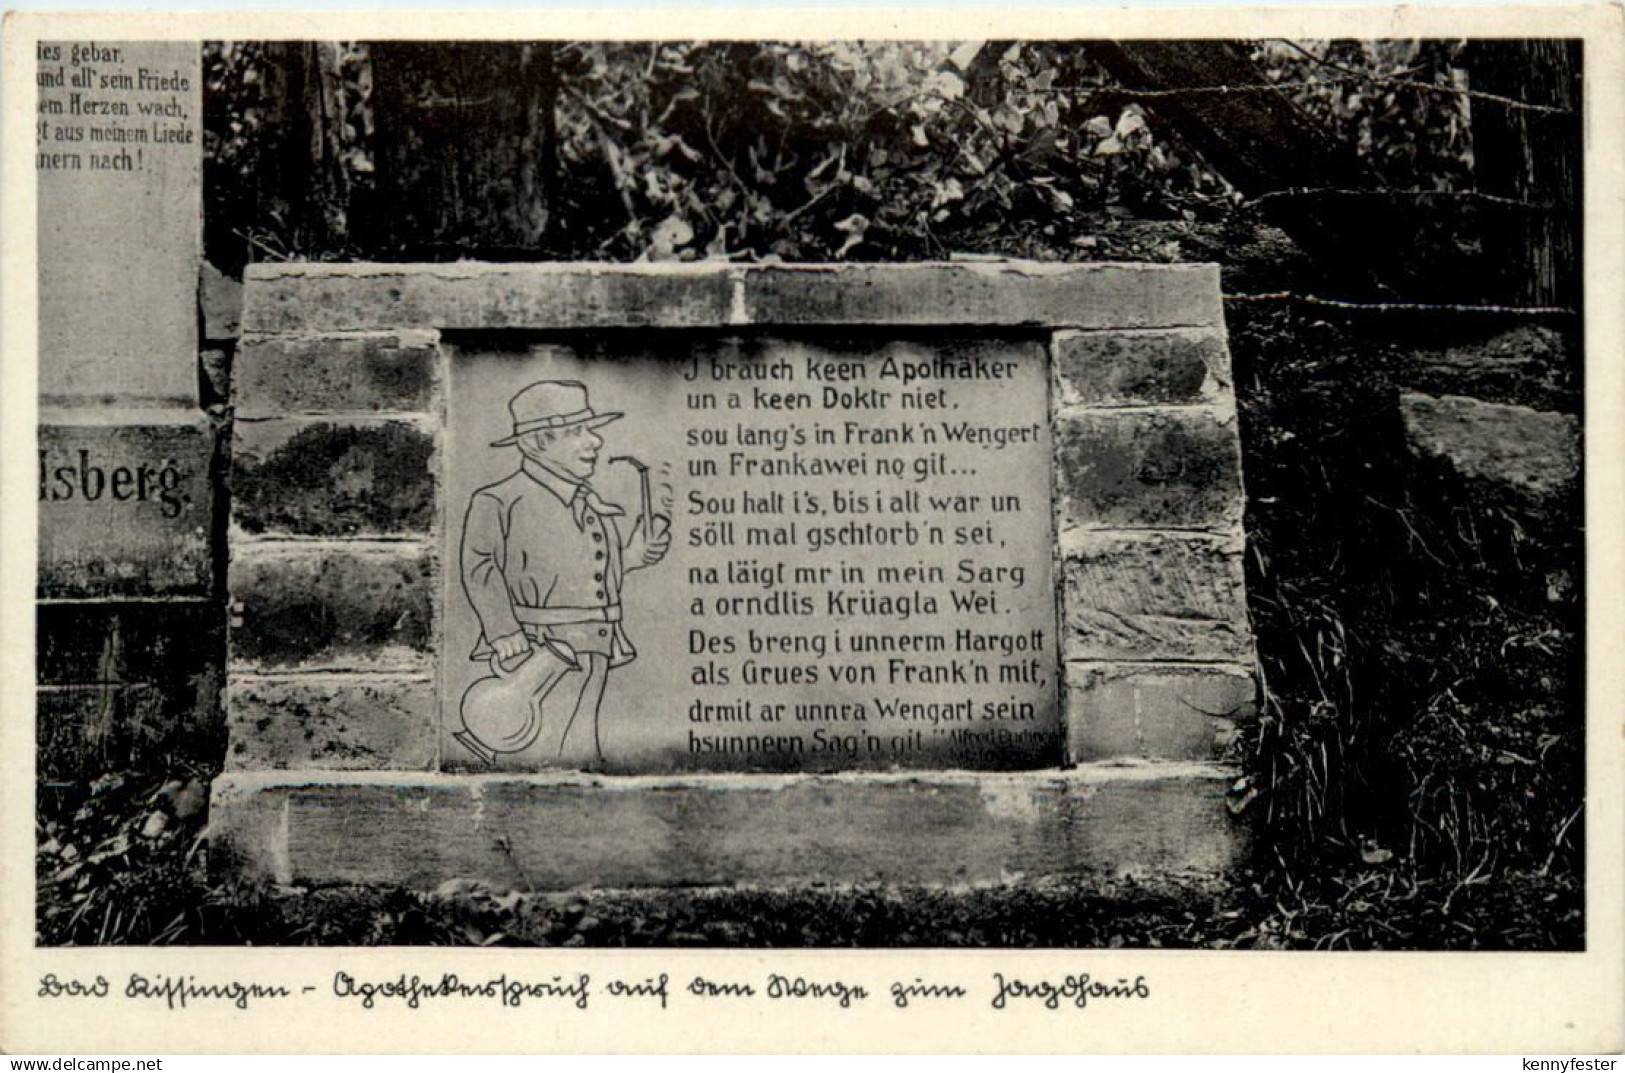 ies gebar.
und all' sein Friede
em Herzen wach,
gt aus meinem Liede
nern nach!
lsberg.
J brauch keen Apothäker
un a keen Doktr niet.
sou lang's in Frank'n Wengert
un Frankawei no git...
Sou halt i's, bis i alt war un
söll mal gschtorb'n sei,
na läigt mr in mein Sarg
a orndlis Krüagla Wei.
Des breng i unnerm Hargott
als Grues von Frank'n mit,
drmit ar unnra Wengart sein
bsunnern Sag'n git."
Alfred
Bad Kissingen - Apothekerspruch auf dem Wege zum Jagdhaus
www.delcampe.net
kennyfester